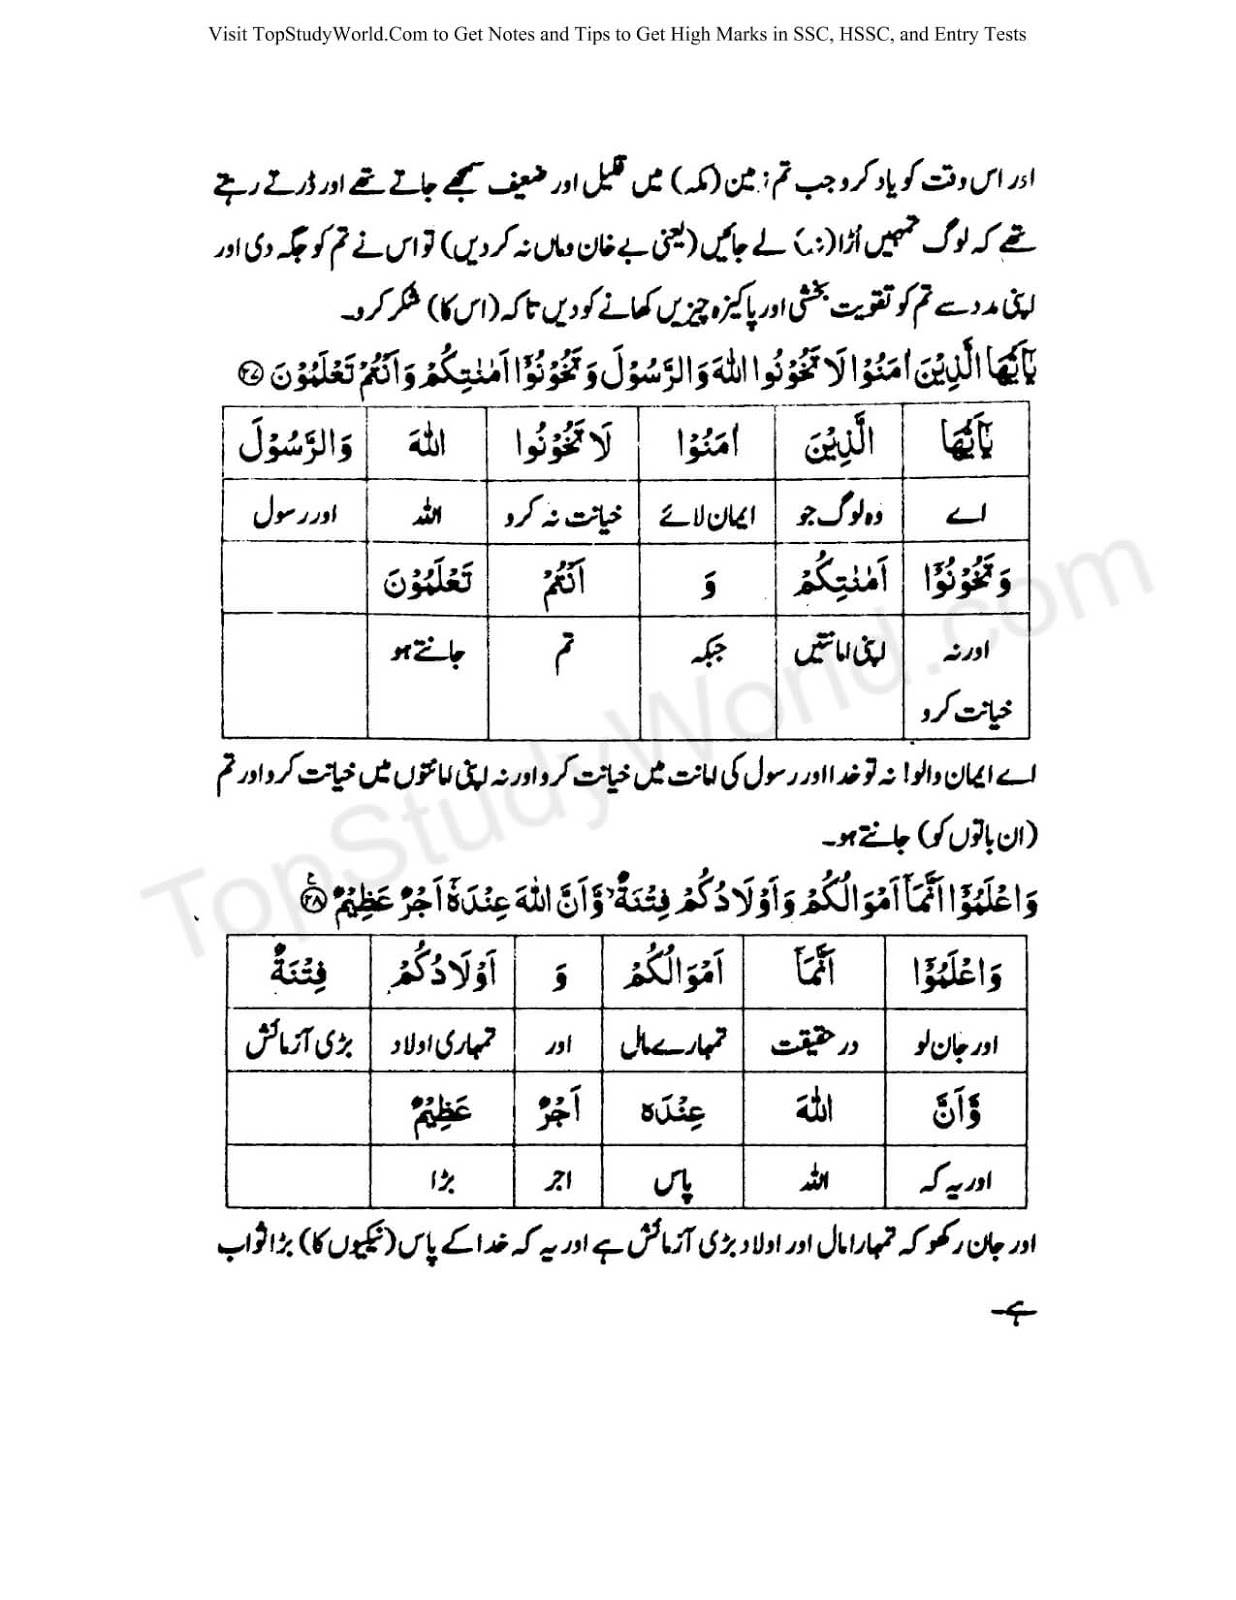 Visit TopStudyWorld.Com to Get Notes and Tips to Get High Marks in SSC, HSSC, and Entry Tests
اور اس وقت کو یاد کرو جب تم زمین (مکہ) میں قلیل اور ضعیف سمجھے جاتے تھے اور ڈرتے رہتے
تھے کہ لوگ تمہیں اُڑا (نہ) لے جائیں (یعنی بے خان وماں نہ کر دیں) تو اس نے تم کو جگہ دی اور
اپنی مدد سے تم کو تقویت بخشی اور پاکیزہ چیزیں کھانے کو دیں تاکہ (اس کا) شکر کرو۔
يٰٓاَيُّهَا الَّذِيْنَ اٰمَنُوْا لَا تَخُوْنُوا اللّٰهَ وَالرَّسُوْلَ وَ تَخُوْنُوْٓا اَمٰنٰتِكُمْ وَاَنْتُمْ تَعْلَمُوْنَ ۲۷
يٰٓاَيُّهَا الَّذِيْنَ اٰمَنُوْا لَا تَخُوْنُوا اللّٰهَ وَالرَّسُوْلَ
اے وہ لوگ جو ایمان لائے خیانت نہ کرو اللہ اور رسول
وَ تَخُوْنُوْٓا اَمٰنٰتِكُمْ وَ اَنْتُمْ تَعْلَمُوْنَ
اور نہ اپنی امانتیں جبکہ تم جانتے ہو
خیانت کرو
اے ایمان والو! نہ تو خدا اور رسول کی امانت میں خیانت کرو اور نہ اپنی امانتوں میں خیانت کرو اور تم
(ان باتوں کو) جانتے ہو۔
وَاعْلَمُوْٓا اَنَّمَآ اَمْوَالُكُمْ وَاَوْلَادُكُمْ فِتْنَةٌ ۙ وَّاَنَّ اللّٰهَ عِنْدَهٗٓ اَجْرٌ عَظِيْمٌ ۲۸ ع
وَاعْلَمُوْٓا اَنَّمَآ اَمْوَالُكُمْ وَ اَوْلَادُكُمْ فِتْنَةٌ
اور جان لو در حقیقت تمہارے مال اور تمہاری اولاد بڑی آزمائش
وَّاَنَّ اللّٰهَ عِنْدَهٗ اَجْرٌ عَظِيْمٌ
اور یہ کہ اللہ پاس اجر بڑا
اور جان رکھو کہ تمہارا مال اور اولاد بڑی آزمائش ہے اور یہ کہ خدا کے پاس (نیکیوں کا) بڑا ثواب
ہے۔
TopStudyWorld.com